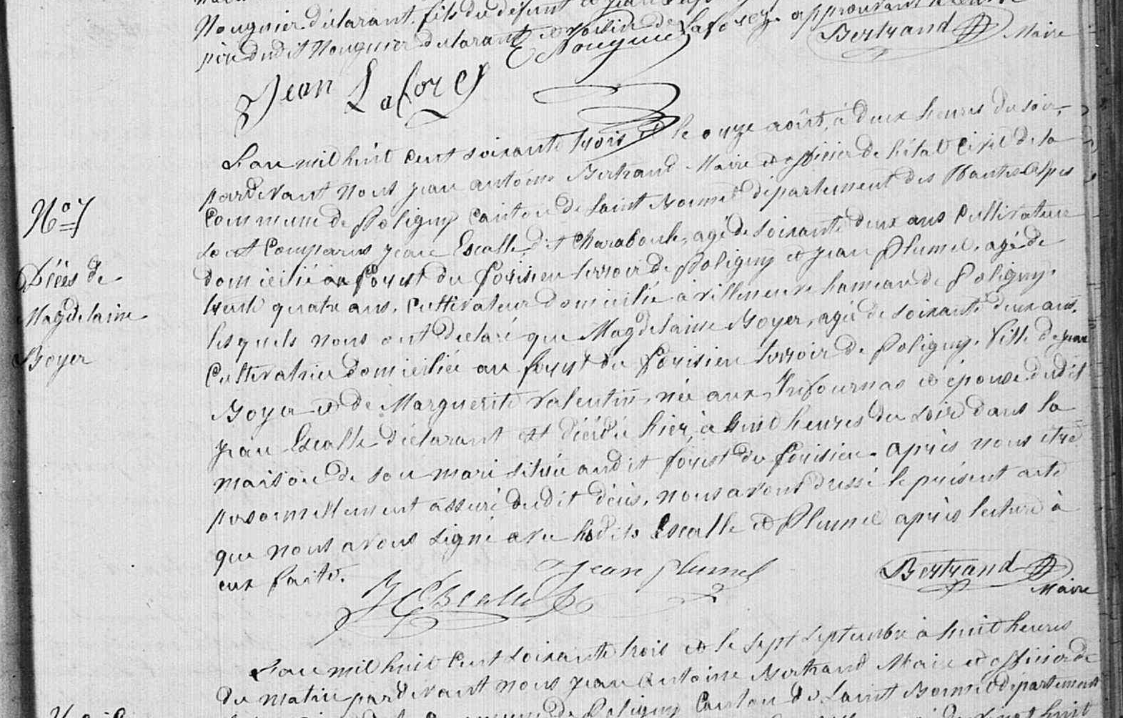 Nougnier déclarant, fils du défunt et Jean
père dudit Nougnier déclarant
Nougnier Bertrand Maire
Jean Laforey
L'an mil huit cent soixante trois et le onze août, à deux heures du soir,
pardevant nous Jean Antoine Bertrand Maire et officier de l'état civil de la
Commune de Poligny Canton de Saint Bonnet département des Hautes alpes
sont Comparus Jean Escalle dit Charaboule, agé de soixante deux ans Cultivateur
domicilié au forest du forisien terroir de Poligny et Jean Plumel, agé de
trente quatre ans, Cultivateur domicilié à villeneuve hameau de Poligny.
lesquels nous ont declaré que Magdelaine Boyer, agée de soixante deux ans,
Cultivatrice domiciliée au forest du forisien terroir de Poligny, fille de Jean
Boyer et de Marguerite Valentin, née aux Infournas et épouse dudit
Jean Escalle déclarant est décédée hier, à huit heures du soir dans la
maison de son mari située audit forest du forisien. après nous être
personnellement assuré dudit décès, nous avons dressé le présent acte
que nous avons signé avec lesdits Escalle et Plumel après lecture à
eux faite.
N° 7
Décès de
Magdelaine
Boyer
J Escalle Jean Plumel Bertrand
Maire
L'an mil huit cent soixante trois et le sept septembre à huit heures
du matin pardevant nous Jean Antoine Bertrand Maire et officier de
Commune de Poligny Canton de Saint Bonnet département